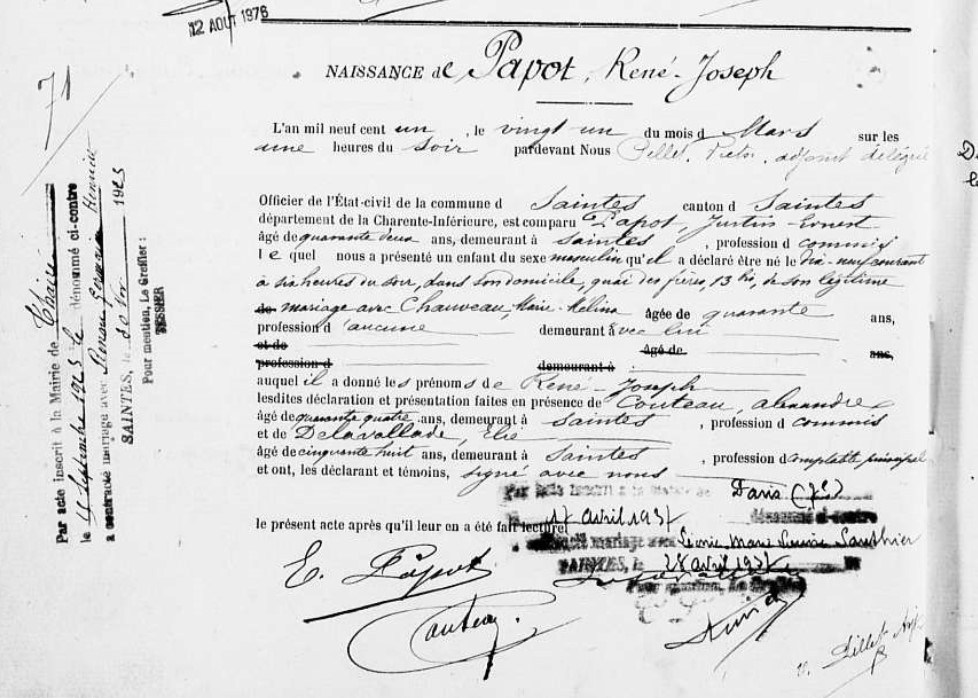 12 AOUT 1976
71
NAISSANCE de Papot, René-Joseph
L'an mil neuf cent un, le vingt un du mois d Mars sur les
une heures du soir pardevant Nous adjoint délégué
Officier de l'État-civil de la commune d Saintes canton d Saintes
département de la Charente-Inférieure, est comparu Papot, Justin-Ernest
âgé de quarante deux ans, demeurant à Saintes, profession d commis
lequel nous a présenté un enfant du sexe masculin qu'il a déclaré être né le dix-neuf courant
à six heures du soir, dans son domicile, quai des frères, 13 bis, de son légitime
de mariage avec Chauveau, Marie Mélina âgée de quarante ans,
profession d aucune demeurant avec lui
et de âgé de ans,
profession d demeurant à
auquel il a donné les prénoms de René-Joseph
lesdites déclaration et présentation faites en présence de Couteau, alexandre
âgé de quarante quatre ans, demeurant à Saintes, profession d commis
et de Delavallade, Elie
âgé de cinquante huit ans, demeurant à Saintes, profession d comptable principal
et ont, les déclarant et témoins, signé avec nous
le présent acte après qu'il leur en a été fait lecture.
E. Papot
Couteau
Par acte inscrit à la Mairie de
le septembre 1923 le dénommé ci-contre
a contracté mariage avec Germaine
SAINTES, le 1923
Pour mention, Le Greffier :
TESSIER
Paris (7e)
17 avril 1937 dénommé ci-contre
mariage avec Marie Louise
SAINTES, le 28 avril 1937
Pour mention, Le Greffier